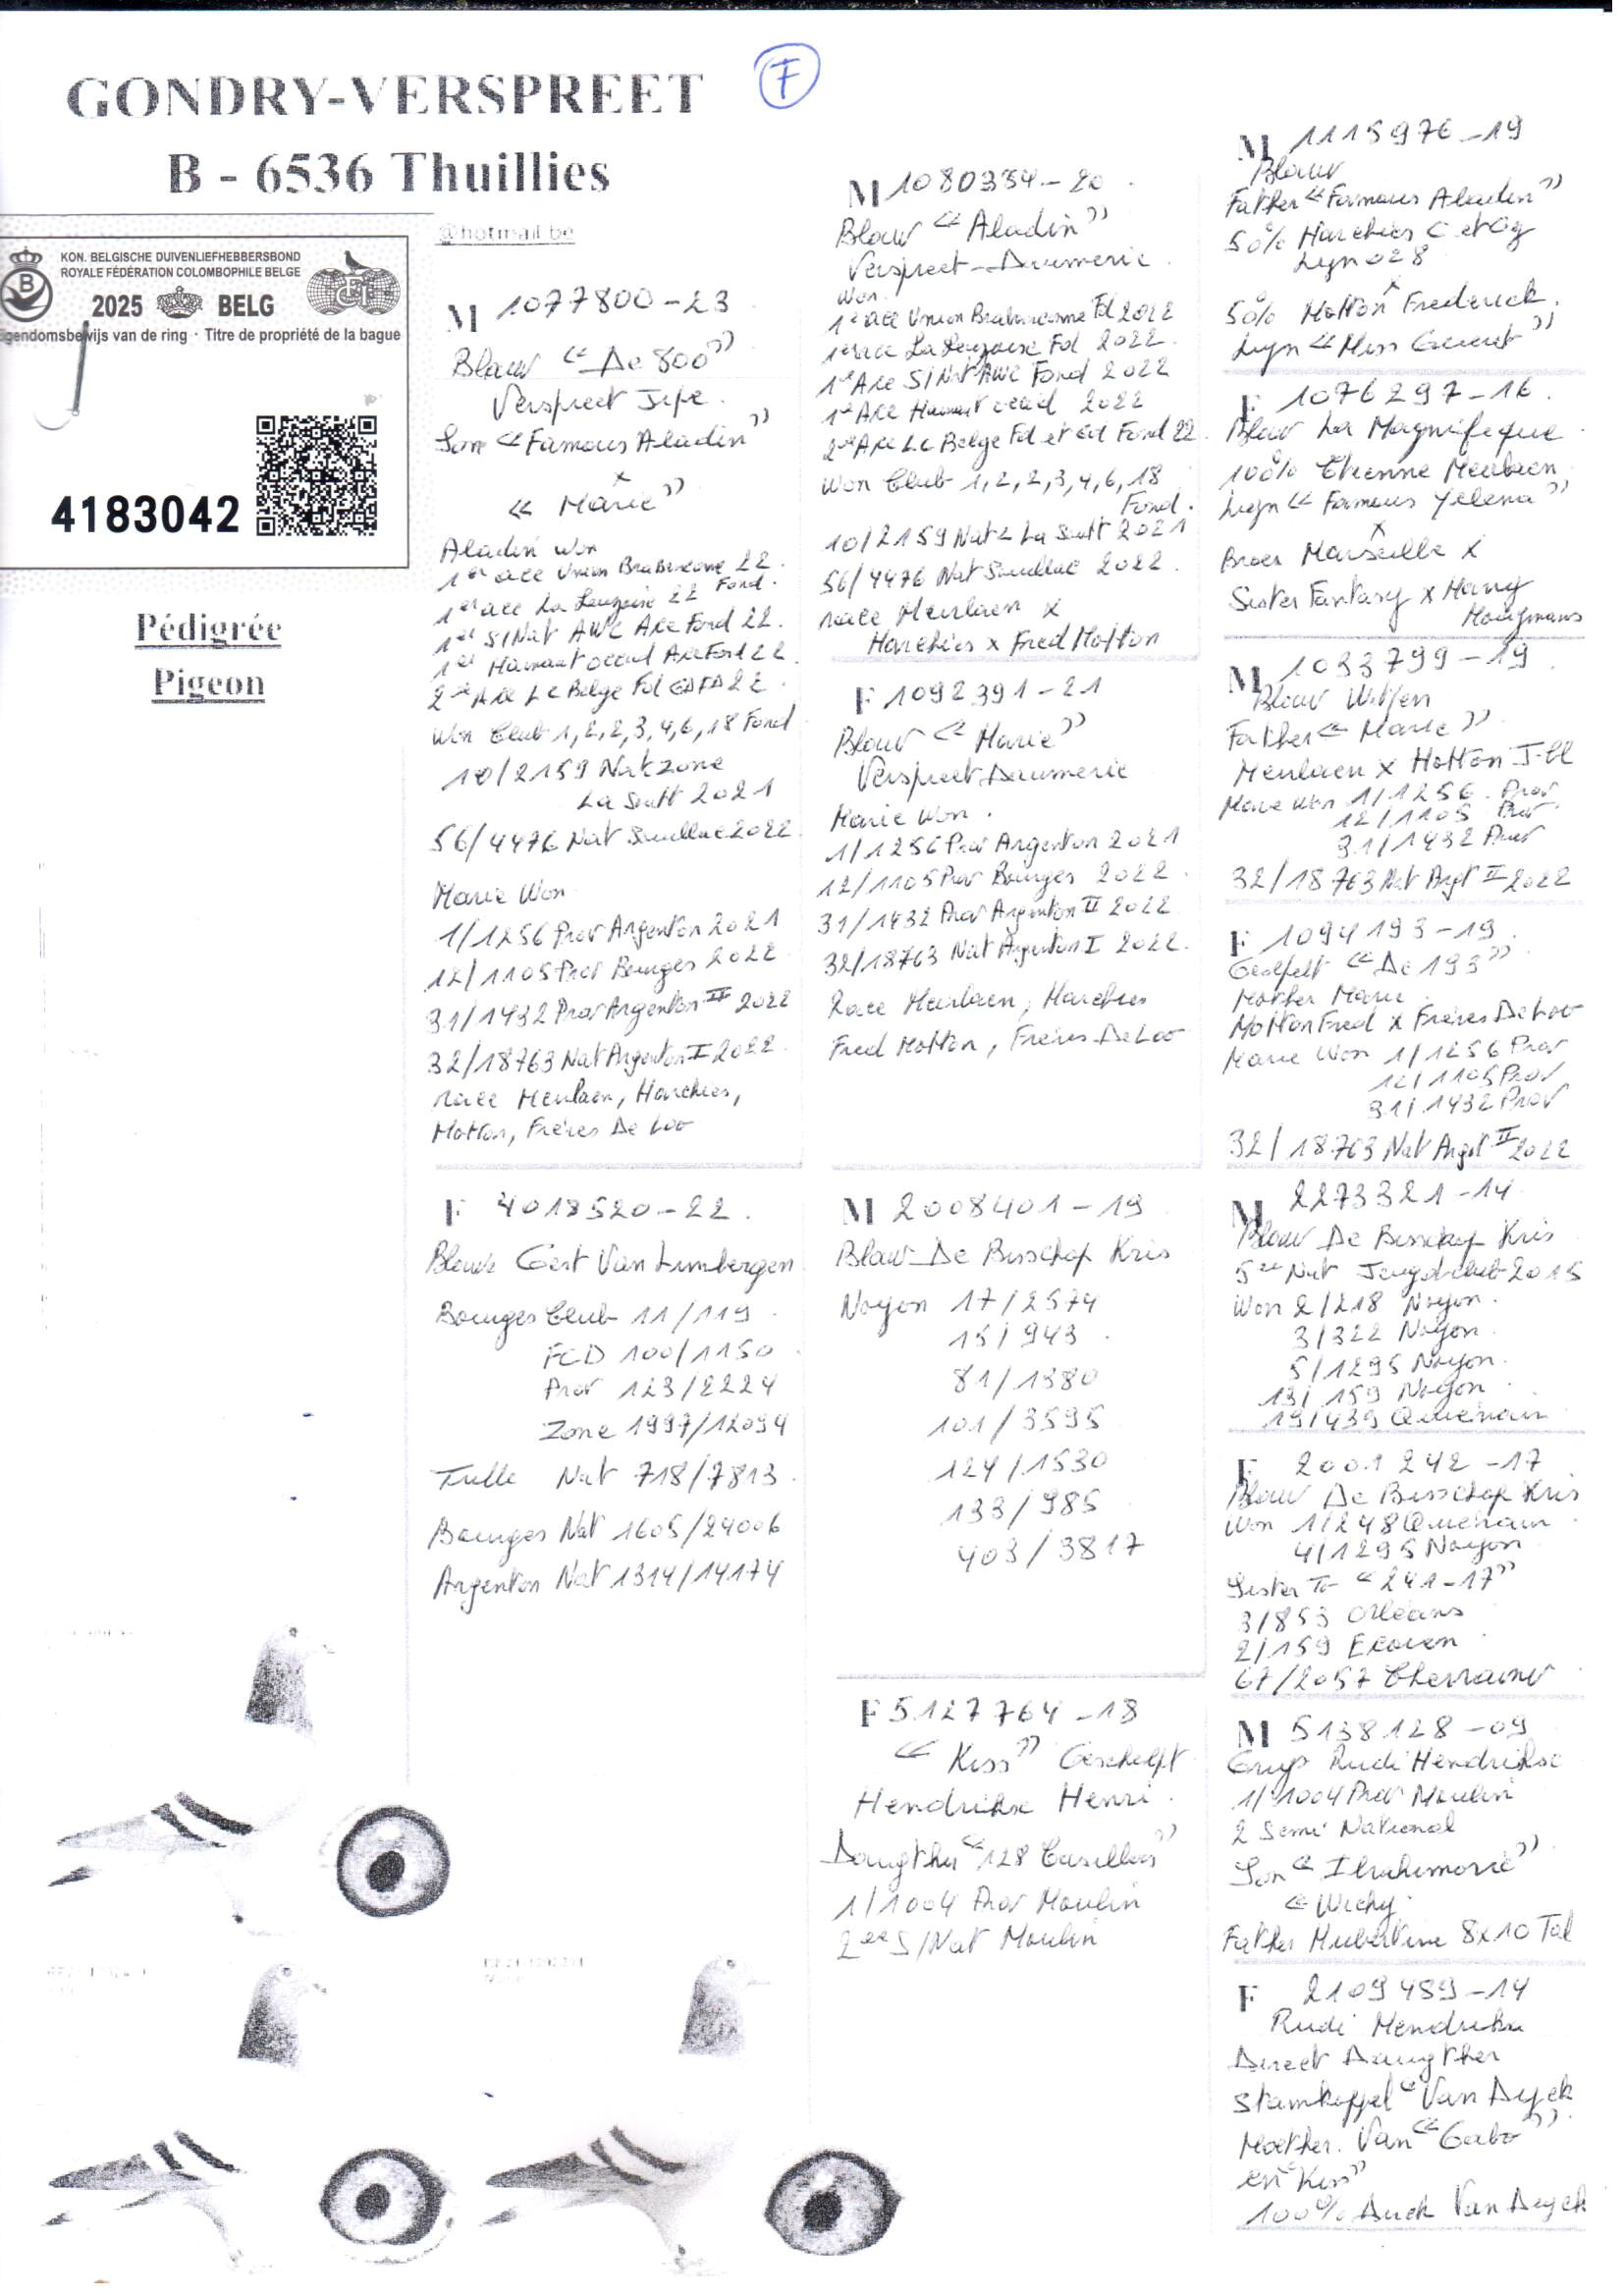 GONDRY-VERSPREET
F
B - 6536 Thuillies
@hotmail.be
KON. BELGISCHE DUIVENLIEFHEBBERSBOND
ROYALE FÉDÉRATION COLOMBOPHILE BELGE
2025 BELG
FCI
gendomsbewijs van de ring · Titre de propriété de la bague
4183042
Pédigrée
Pigeon
M 1077800-23
Blauw "De 800"
Verspreet Jepe.
Son "Famous Aladin"
x
"Marie"
Aladin won
1er ace Union Brabancone 22
Fond.
1er ace La Leuzoise 22
1er S/Nat AWC Ace Fond 22.
1er Hainaut occid Ace Fond 22.
2me Ace Lc Belge Fd 22.
Won Club 1,2,2,3,4,6,18 Fond
10/2159 Nat zone
La Sout 2021
56/4476 Nat Souillac 2022
Marie Won
1/1256 Prov Argenton 2021
12/1105 Prov Bourges 2022
31/1432 Prov Argenton II 2022
32/18763 Nat Argenton I 2022.
race Meulaen, Harchies,
Hotton, Frères De Loo
F 4018520-22.
Blauw Gert Van Limbergen
Bourges Club 11/119
FCD 100/1150
Prov 123/2224
Zone 1997/12094
Tulle Nat 718/7813.
Bourges Nat 1605/24006
Argenton Nat 1314/14174
M 1080334-20.
Blauw "Aladin"
Verspreet-Daumerie.
Won.
1er ace Union Brabanconne Fd 2022
1er ace La Leuzoise Fd 2022.
1er Ace S/Nat AWC Fond 2022
1er Ace Hainaut occid 2022
2me Ace Lc Belge Fd et Gd Fond 22.
Won Club 1,2,2,3,4,6,18
Fond.
10/2159 Nat La Sout 2021
56/4476 Nat Souillac 2022.
race Meulaen x
Harchies x Fred Hotton
F 1092391-21
Blauw "Marie"
Verspreet Daumerie
Marie Won.
1/1256 Prov Argenton 2021
12/1105 Prov Bourges 2022.
31/1432 Prov Argenton II 2022
32/18763 Nat Argenton I 2022.
Race Meulaen, Harchies
Fred Hotton, Frères De Loo
M 2008401-19
Blauw De Bisschop Kris
Noyon 17/2574
15/943
81/1380
101/3595
124/1530
133/985
403/3817
F 5127764-18
"Kiss" Geschelpt
Hendrikx Henri.
Daugther "128 Casillas"
1/1004 Prov Moulin
2ee S/Nat Moulin
M 1115976-19
Blauw
Father "Famous Aladin"
50% Harchies
Lyn 028
x
50% Hotton Frederick.
Lyn "Miss"
F 1076297-16.
Blauw La Magnifique.
100% Etienne Meulaen
Lyn "Famous Yelena"
x
Broer Marseille x
Sister Fantasy x Harry
Hooymans
M 1033799-19.
Blauw Witpen
Father "Marie"
Meulaen x Hotton
Marie won 1/1256. Prov
12/1105 Prov
31/1432 Prov
32/18763 Nat Argt II 2022
F 1094193-19.
"De 193"
Mother Marie.
Hotton Fred x Frères De Loo
Marie Won 1/1256 Prov
12/1105 Prov
31/1432 Prov
32/18763 Nat Argt II 2022
M 2273321-14.
Blauw De Bisschop Kris
5de Nat Jeugdclub 2015
Won 2/218 Noyon.
3/322 Noyon.
5/1295 Noyon.
13/159 Noyon.
19/439 Quievrain
F 2001242-17
Blauw De Bisschop Kris
Won 1/248 Quievrain.
4/1295 Noyon
Sister To "241-17"
3/853 Orleans
2/159 Ecouen.
67/2057 Chevrainv
M 5138128-09
Rudi Hendrikse
1/1004 Prov Moulin
2 Semi National
Son "Ibrahimovic"
"Vichy.
Father Hubertine 8x10 Tal
F 2109489-14
Rudi Hendrikx
Direct Daugther
Stamkoppel "Van Dyck
Moether. Van "Gabo"
en "Kiss"
100% Dirk Van Dyck